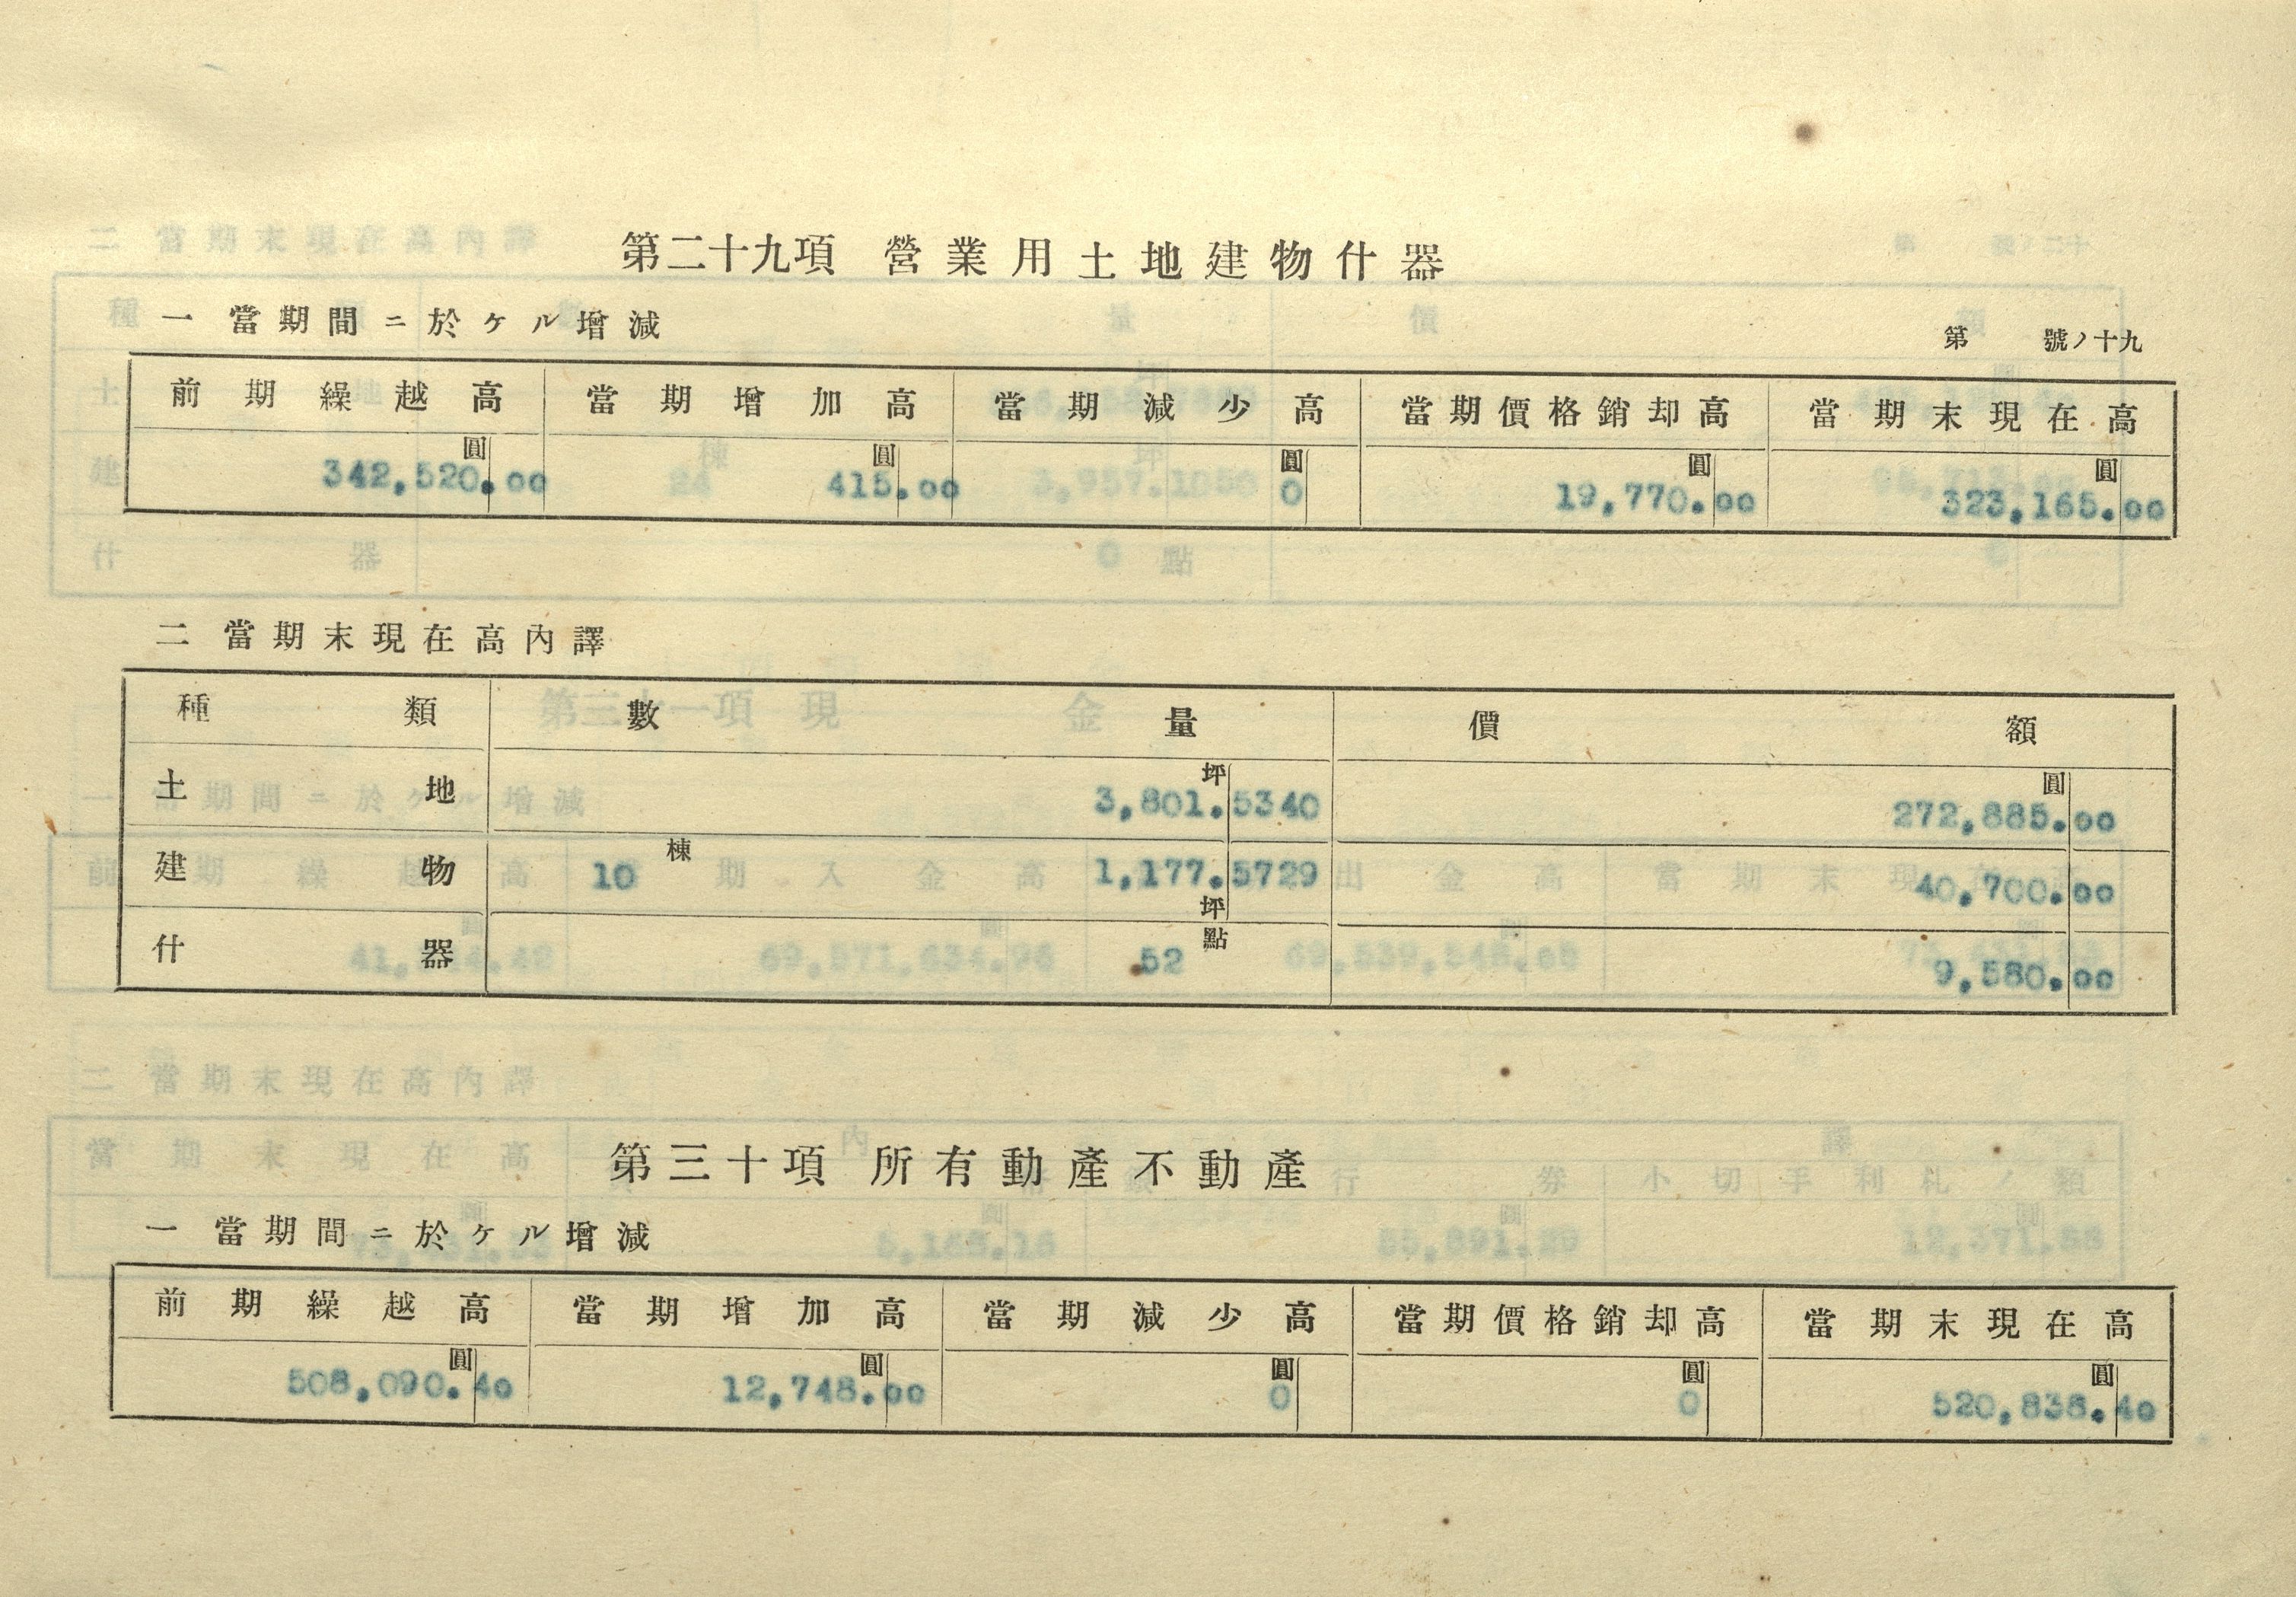 第二十九項 營業用土地建物什器
一 當期間ニ於ケル增減
第 號ノ十九
前期繰越高 當期增加高 當期減少高 當期價格銷却高 當期末現在高
圓 圓 圓 圓 圓
342,520.00 415.00 0 19,770.00 323,165.00
二 當期末現在高內譯
種類 數量 價額
土地 3,801.5340坪 272,885.00圓
建物 10棟 1,177.5729坪 40,700.00
什器 52點 9,580.00
第三十項 所有動產不動產
一 當期間ニ於ケル增減
前期繰越高 當期增加高 當期減少高 當期價格銷却高 當期末現在高
圓 圓 圓 圓 圓
508,090.40 12,748.00 0 0 520,838.40